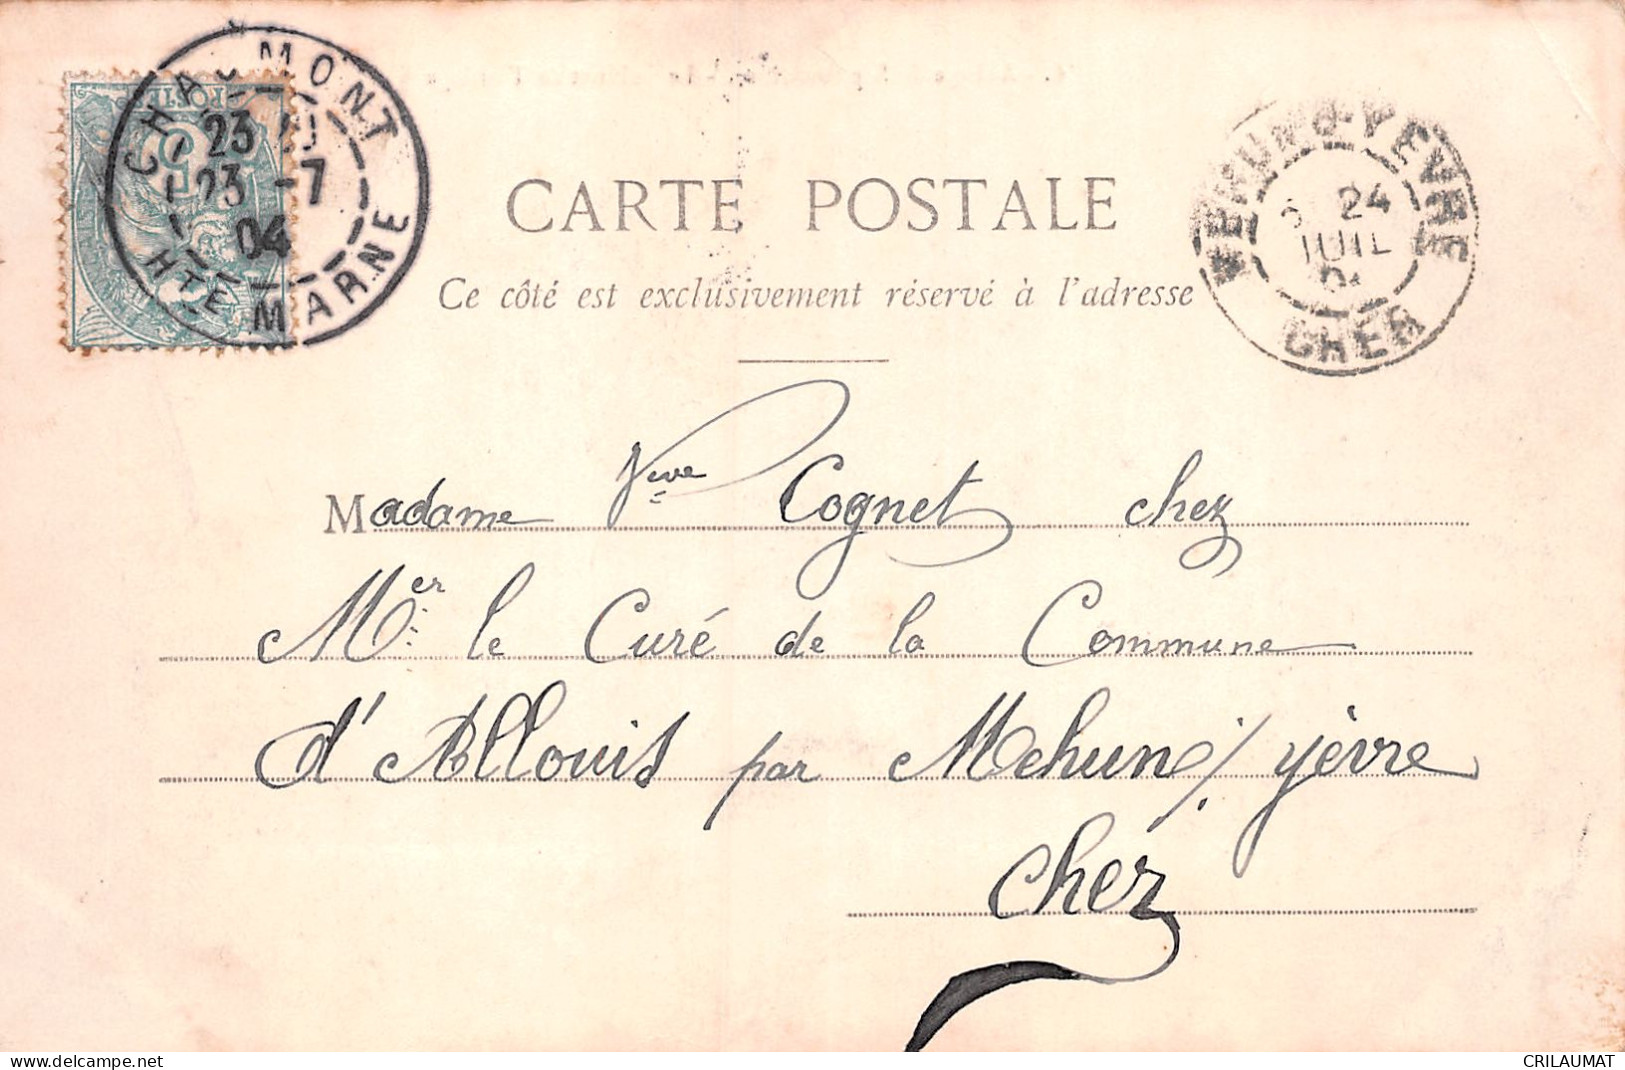 CHAUMONT
23
23 -7
04
HTE MARNE
POSTES
5
MEHUN-S-YEVRE
24
JUIL
CHER
CARTE POSTALE
Ce côté est exclusivement réservé à l'adresse
Madame Vve Cognet chez
Mer le Curé de la Commune
d'Allouis par Mehun s/ yèvre
Cher
delcampe.net
CRILAUMAT